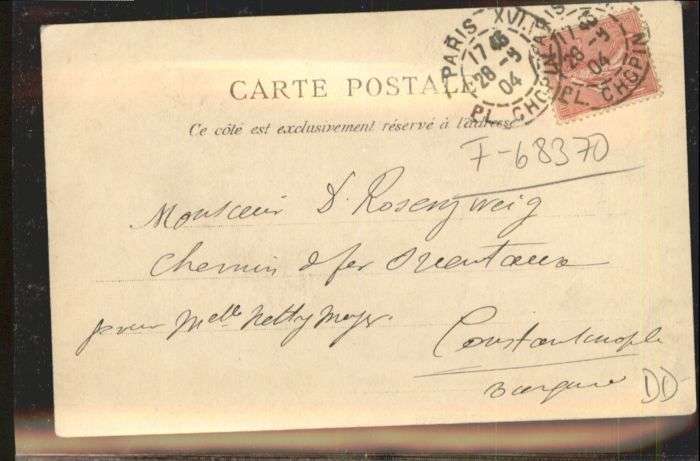 PARIS XVI.
17 45
28 -3
04
PL. CHOPIN
PARIS XVI.
17 45
28 -3
04
PL. CHOPIN
CARTE POSTALE
Ce côté est exclusivement réservé à l'adresse
F-68370
Monsieur D. Rosenzweig
Chemin d fer Orientaux
pour Melle Netty Mayer
Constantinople
Turquie
DD